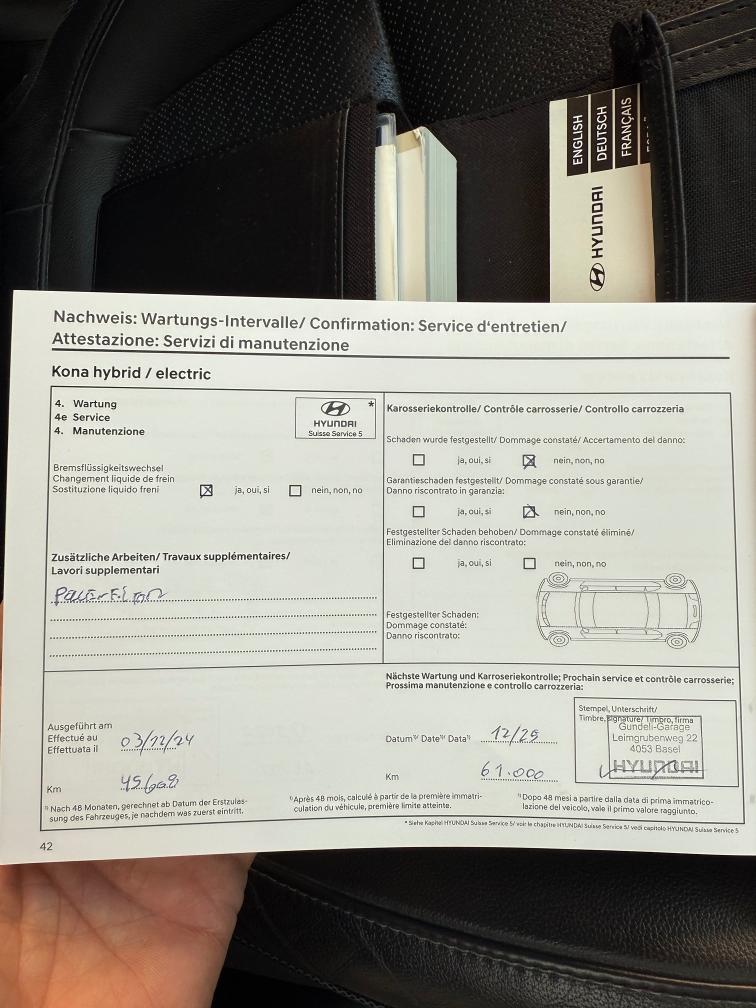 ENGLISH
DEUTSCH
FRANÇAIS
HYUNDAI
Nachweis: Wartungs-Intervalle/ Confirmation: Service d'entretien/
Attestazione: Servizi di manutenzione
Kona hybrid / electric
4. Wartung
4e Service
4. Manutenzione
*
HYUNDAI
Suisse Service 5
Bremsflüssigkeitswechsel
Changement liquide de frein
Sostituzione liquido freni
ja, oui, si
nein, non, no
Zusätzliche Arbeiten/ Travaux supplémentaires/
Lavori supplementari
Karosseriekontrolle/ Contrôle carrosserie/ Controllo carrozzeria
Schaden wurde festgestellt/ Dommage constaté/ Accertamento del danno:
ja, oui, si
nein, non, no
Garantieschaden festgestellt/ Dommage constaté sous garantie/
Danno riscontrato in garanzia:
ja, oui, si
nein, non, no
Festgestellter Schaden behoben/ Dommage constaté éliminé/
Eliminazione del danno riscontrato:
ja, oui, si
nein, non, no
Festgestellter Schaden:
Dommage constaté:
Danno riscontrato:
Ausgeführt am
Effectué au
Effettuata il
03/12/24
Km
Nächste Wartung und Karroseriekontrolle; Prochain service et contrôle carrosserie;
Prossima manutenzione e controllo carrozzeria:
Datum¹⁾ Date¹⁾ Data¹⁾
12/25
Km
61.000
Stempel, Unterschrift/
Timbre, signature/ Timbro, firma
Gundeli-Garage
Leimgrubenweg 22
4053 Basel
HYUNDAI
¹⁾ Nach 48 Monaten, gerechnet ab Datum der Erstzulas-
sung des Fahrzeuges, je nachdem was zuerst eintritt.
¹⁾ Après 48 mois, calculé à partir de la première immatri-
culation du véhicule, première limite atteinte.
¹⁾ Dopo 48 mesi a partire dalla data di prima immatrico-
lazione del veicolo, vale il primo valore raggiunto.
* Siehe Kapitel HYUNDAI Suisse Service 5/ voir le chapitre HYUNDAI Suisse Service 5/ vedi capitolo HYUNDAI Suisse Service 5
42